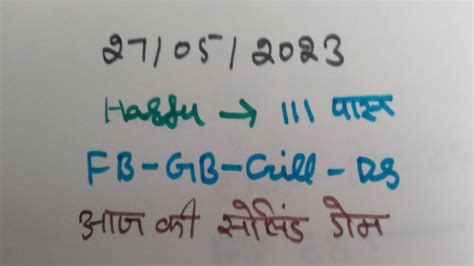 27/05/2023
Haffu → 111 पास
FB-GB-Gill-DS
आज की सोलिड गेम